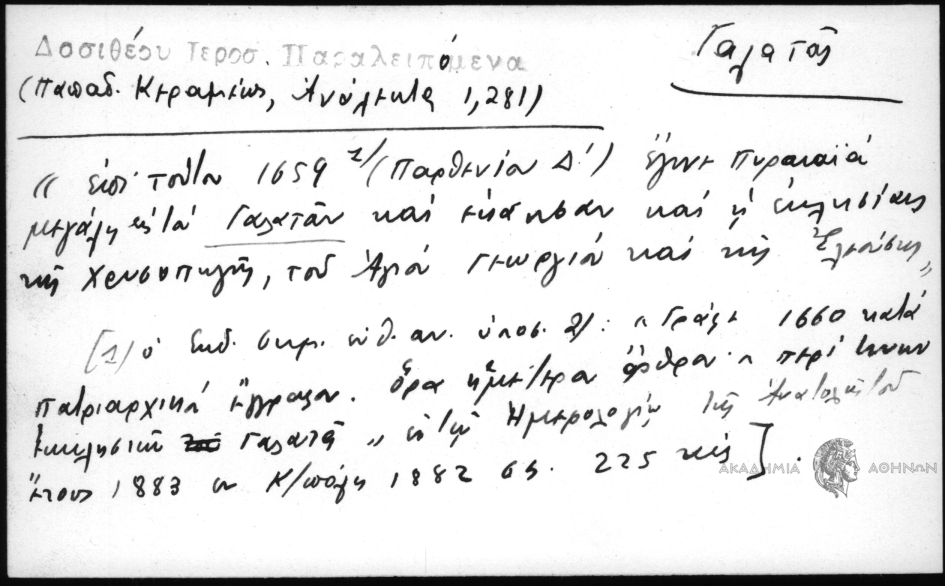 Δοσιθέου Ιεροσ. Παραλειπόμενα
Γαλατᾶς
(Παπαδ. Κεραμέως, Ἀνάλεκτα 1,281)
"ἐπὶ τούτου 1659 1/ (Παρθενίου Δ') ἔγινε πυρκαϊά
μεγάλη εἰς τὸ Γαλατᾶν καὶ ἐκάησαν καὶ ἡ ἐκκλησίαις
τῆς Χρυσοπηγῆς, τοῦ Ἁγίου Γεωργίου καὶ τῆς Ἐλεούσης"
[1) ὁ ἐκδ. σημ. ἐνθ. αν. ὑποσ. 2/: "Γράφε 1660 κατὰ
πατριαρχικὸν ἔγγραφον. Ὅρα ἡμέτερον ἄρθρον " περὶ τῶν
ἐκκλησιῶν Γαλατᾶ " ἐν τῷ Ἡμερολογίῳ τῆς Ἀνατολῆς τοῦ
ἔτους 1883 ἐν Κ/πόλει 1882 σ. 225 κἑξ].
ΑΚΑΔΗΜΙΑ ΑΘΗΝΩΝ